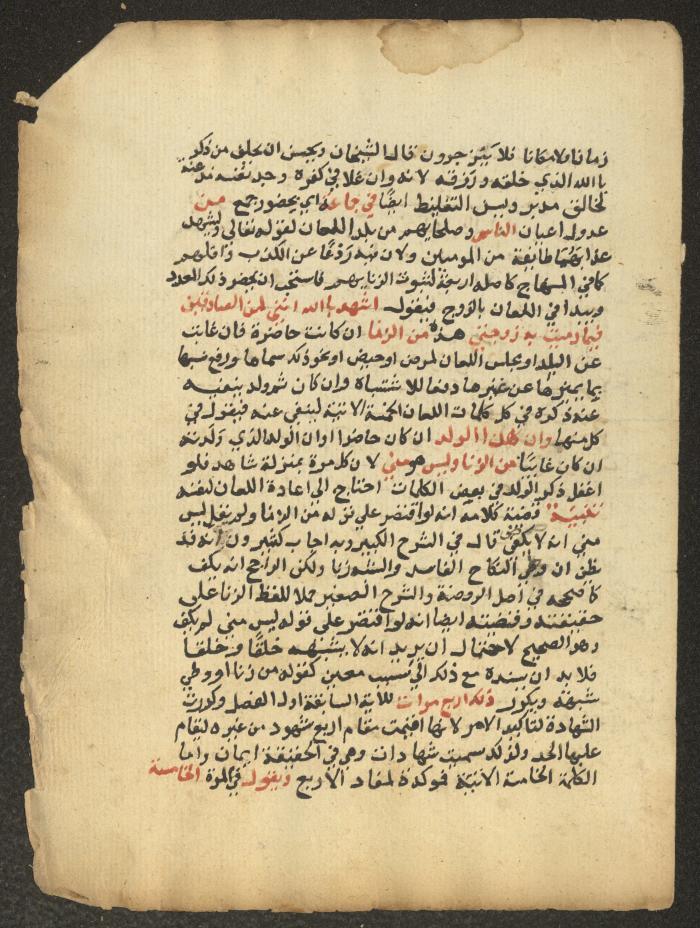 زمانا ولا مكانا فلا ينزجرون قال الشيخان ويحسن ان يحلف من ذكر
بالله الذي خلقه ورزقه لانه وان غلا في كفره وجد نفسه مذعنة
لخالق مدبر ويسن التغليظ ايضا في جماعة اي بحضور جمع من
عدول اعيان الناس وصلحايهم من بلد اللعان لقوله تعالى وليشهد
عذابهما طايفة من المومنين ولان فيه ردعا عن الكذب واقلهم
كما في المنهاج كاصله اربعة لثبوت الزنا بهم فاستحب ان يحضر ذلك العدد
ويبدا في اللعان بالزوج فيقول اشهد بالله انني لمن الصادقين
فيما رميت به زوجتي هذه من الزنا ان كانت حاضرة فان غابت
عن البلد او مجلس اللعان لمرض او حيض او نحو ذلك سماها ورفع نسبها
بما يميزها عن غيرها دفعا للاشتباه وان كان ثم ولد ينفيه
عنه ذكره في كل كلمات اللعان الخمسة الاتية لينفي عنه فيقول في
كل منها وان هذا الولد ان كان حاضرا او ان الولد الذي ولدته
ان كان غايبا من الزنا وليس هو مني لان كل مرة بمنزلة شاهد فلو
اغفل ذكر الولد في بعض الكلمات احتاج الى اعادة اللعان لنفيه
تنبيه قضية كلامه انه لو اقتصر على قوله من الزنا ولم يقل ليس
مني انه لا يكفي قال في الشرح الكبير وبه اجاب كثيرون لانه قد
يظن ان وطي النكاح الفاسد والشبهة زنا ولكن الراجح انه يكفي
كما صححه في اصل الروضة والشرح الصغير حملا للفظ الزنا على
حقيقته وقضيته ايضا انه لو اقتصر على قوله ليس مني لم يكف
وهو الصحيح لاحتمال ان يريد انه لا يشبهه خلقا وخلقا
فلا بد ان يسنده مع ذلك الى سبب معين كقوله من زنا او وطي
شبهة ويكرر ذلك اربع مرات للآية السابقة اول الفصل وكررت
الشهادة لتاكيد الامر لانها اقيمت مقام اربع شهود من غيره ليقام
عليها الحد ولذلك سميت شهادات وهي في الحقيقة ايمان واما
الكلمة الخامسة الاتية فموكدة لمفاد الاربع ويقول في المرة الخامسة